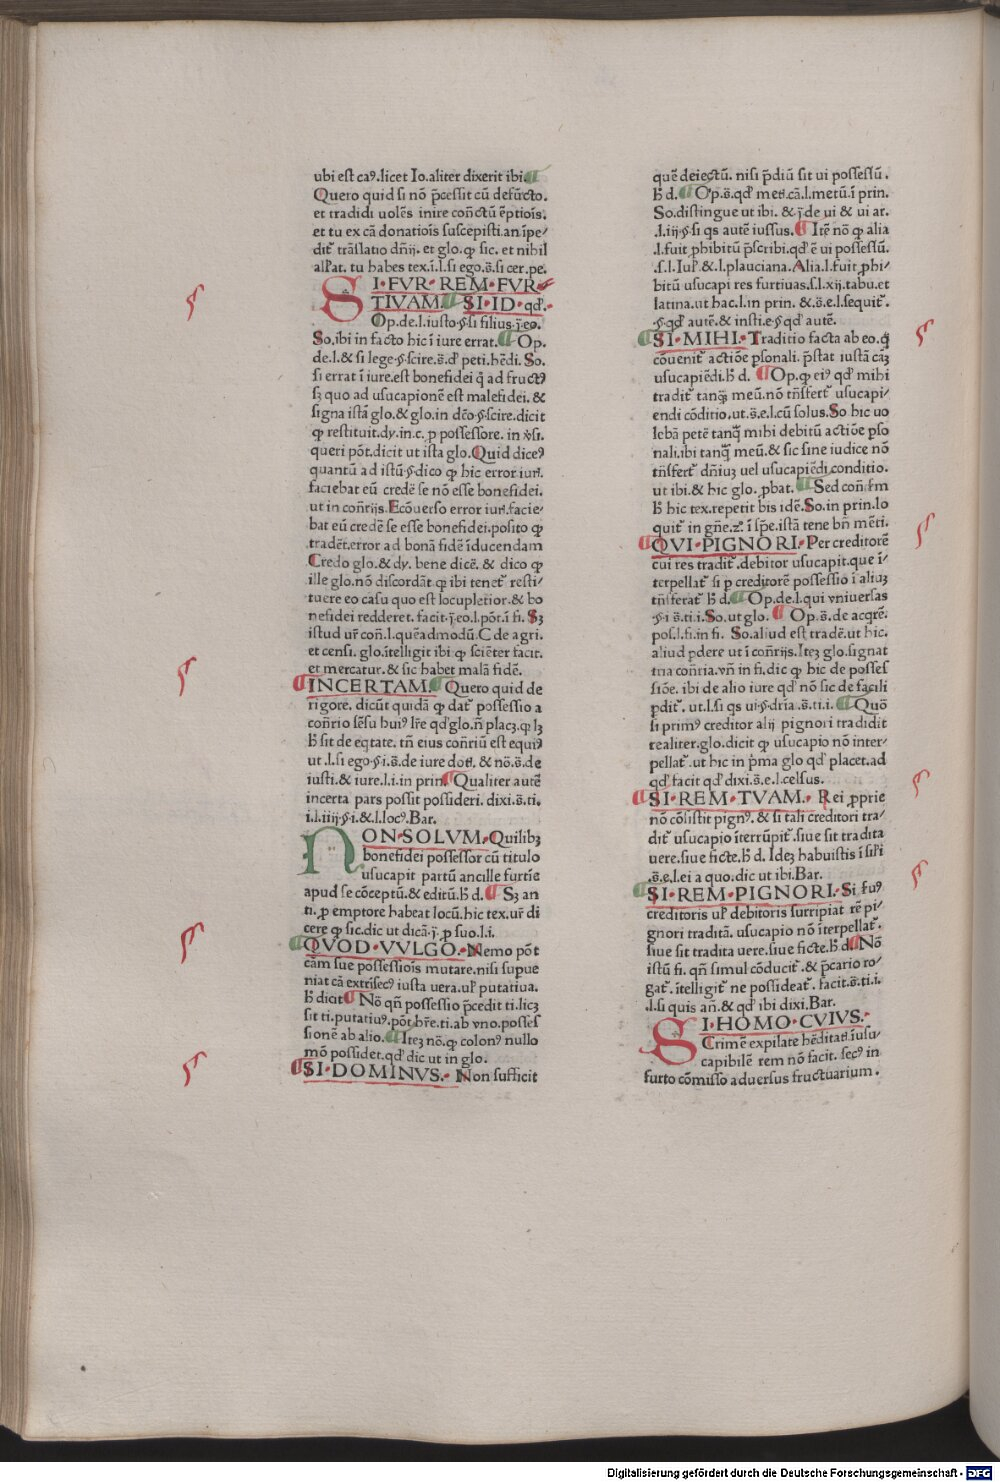 ubi est caꝰ.licet Io.aliter dixerit ibi.
Quero quid si nō p̄cessit cū defūcto.
et tradidi uolēs inire con̄ctū ēptiōis.
et tu ex cā donatiōis suscepisti.an īpe/
dit᷑ trāslatio dn̄ij. et glo.ꝙ sic. et nihil
alꝑat. tu habes tex.ī.l.si ego.s̄.si cer.pe.
SI·FVR·REM·FVR·
TIVAM. SI·ID·qd̕.
Op.de.l.iusto.§.si filius.j̄.eo.
So.ibi in facto hic ī iure errat. Op.
de.l.& si lege.§.scire.s̄.d̕ peti.hēdi. So.
si errat ī iure.est bonefidei q̄ ad fructꝰ
sꝫ quo ad usucapionē est malefidei.&
signa istā glo.& glo.in dēo.§.scire.dicit
ꝙ restituit.dy.in.c. ꝑ possessore. in ꝟsi.
queri pōt.dicit ut ista glo.Quid diceꝰ
quantū ad istū.§.dico ꝙ hic error iurꝭ.
faciebat eū credē se nō esse bonefidei.
ut in con̄rijs.Ecōuerso error iurꝭ.facie/
bat eū credē se esse bonefidei.posito ꝙ
tradēt.error ad bonā fidē īducendam
Credo glo.& dy. bene dicē. & dico ꝙ
ille glo.nō discordāt.ꝙ ibi tenet᷑ resti/
tuere eo casu quo est locupletior.& bo
nefidei redderet. facit.j̄.eo.l.pōt.ī fi. Sꝫ
istud ur̄ con̄.l.quēadmodū.C de agri.
et censi. glo.ītelligit ibi ꝙ sciēter facit.
et mercatur.& sic habet malā fidē.
INCERTAM. Quero quid de
rigore. dicūt quidā ꝙ dat᷑ possessio a
con̄rio sēsu huiꝰ lr̄e qd̕ glo.n̄ placꝫ.ꝙ lꝫ
h̄ sit de eqtate. tn̄ eius con̄riū est equiꝰ
ut .l.si ego.§.i.s̄.de iure dotꝭ. & nō.s̄.de
iusti.& iure.l.i.in prin. Qualiter autē
incerta pars possit possideri. dixi.s̄.ti.
i.l.iiij.§.i.&.l.locꝰ.Bar.
NON·SOLVM.·Quilibꝫ
bonefidei possessor cū titulo
usucapit partū ancille furtie
apud se cōceptū.& editū.h̄.d. Sꝫ an
ti. ꝑ emptore habeat locū.hic tex.ur̄ di
cere ꝙ sic.dic ut dicā.j̄. ꝑ suo.l.i.
QVOD·VVLGO.·Nemo pōt
cām sue possessiōis mutare.nisi supue
niat cā extrīsecꝰ iusta uera.ul̕ putatiua.
h̄ dicit Nō qn̄ possessio p̄cedit ti.licꝫ
sit ti.putatiuꝰ.pōt hr̄e.ti.ab vno.posses
sionē ab alio. Itēꝫ nō.ꝙ colonꝰ nullo
mō possidet.qd̕ dic ut in glo.
SI·DOMINVS.· Non sufficit
quē deiectū. nisi p̄diū sit ui possessū.
h̄ d. Op.s̄.qd̕ metꝭ.cā.l.metū.ī prin.
So.distingue ut ibi. & j̄.de ui & ui ar.
.l.iij.§.si qs autē iussus. Itē nō ꝙ alia
.l.fuit ꝓhibitū p̄scribi.qd̕ ē ui possessū.
.s.l.Iul̕.& .l.plauciana.Alia.l.fuit ꝓhi/
bitū usucapi res furtiuas.s.l.xij.tabu.et
latina.ut hac.l.in prin. & s̄.e.l.sequit᷑.
.§.qd̕ autē.& insti.e.§.qd̕ autē.
SI·MIHI.·Traditio facta ab eo.q̄
cōuenit᷑ actiōe ꝑsonali. p̄stat iustā cāꝫ
usucapiēdi.h̄ d. Op.ꝙ eiꝰ qd̕ mihi
tradit᷑ tanqꝫ meū.nō tn̄sfert᷑ usucapi/
endi cōditio.ut.s̄.e.l.cū solus.So hic uo
lebā petē tanqꝫ mihi debitū actiōe ꝑso
nali.ibi tanqꝫ meū.& sic sine iudice nō
tn̄sfert᷑ dn̄iuꝫ uel usucapiēdi conditio.
ut ibi.& hic glo. ꝓbat. Sed con̄ d̕m
h̄ hic tex.repetit bis idē.So.in prin.lo
quit᷑ in gn̄e.zº.ī spē.istā tene bn̄ mēti.
QVI·PIGNORI.·Per creditorē
cui res tradit᷑.debitor usucapit.que ī/
terpellat᷑ si ꝑ creditorē possessio ī aliuꝫ
tn̄sferat᷑ h̄ d. Op.de.l.qui vniuersas
§.i s̄.ti.i.So.ut glo. Op.s̄.de acqrē.
pos.l.fi.in fi. So.aliud est tradē.ut hic.
aliud ꝑdere ut ī con̄rijs.Iteꝫ glo.signat
tria con̄ria.vn̄ in fi.dic ꝙ hic de posses
siōe. ibi de alio iure qd̕ nō sic de facili
ꝑdit᷑. ut.l.si qs ui.§.dr̄ia .s̄.ti.i. Quō
si primꝰ creditor alij pignori tradidit
realiter.glo.dicit ꝙ usucapio nō inter/
pellat᷑.ut hic in p̄ma glo qd̕ placet.ad
qd̕ facit qd̕ dixi.s̄.e.l.celsus.
SI·REM·TVAM.· Rei ꝓprie
nō cōsistit pignꝰ.& si tali creditori tra/
dit᷑ usucapio īterrūpit᷑.siue sit tradita
uere.siue ficte.h̄ d. Ideꝫ habuistis ī sil̕i
.s̄.e.l.ei a quo.dic ut ibi.Bar.
SI·REM·PIGNORI.·Si fuꝰ
creditoris ul̕ debitoris surripiat rē pi/
gnori traditā. usucapio nō īterpellat᷑.
siue sit tradita uere.siue ficte.h̄ d. Nō
istū fi. qn̄ simul cōducit᷑.& p̄cario ro/
gat᷑.ītelligit᷑ ne possideat᷑. facit.s̄.ti.i.
.l.si quis an̄.& qd̕ ibi dixi.Bar.
SI·HOMO·CVIVS.·
Crimē expilate hēditatꝭ.īusu/
capibilē rem nō facit. secꝰ in
furto cōmisso aduersus fructuarium.
Digitalisierung gefördert durch die Deutsche Forschungsgemeinschaft - DFG